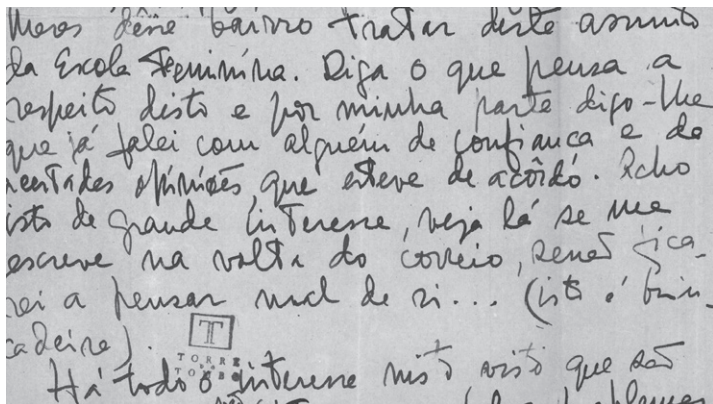 deste bairro tratar deste assunto
da Escola Feminina. Diga o que pensa a
respeito disto e por minha parte digo-lhe
que já falei com alguém de confiança e de
acertadas opiniões, que esteve de acôrdo. Acho
isto de grande interesse, veja lá se me
escreve na volta do correio, senão fica-
rei a pensar mal de si... (isto é brin-
cadeira).
T
TORRE
DO
TOMBO
Há todo o interesse nisto visto que são